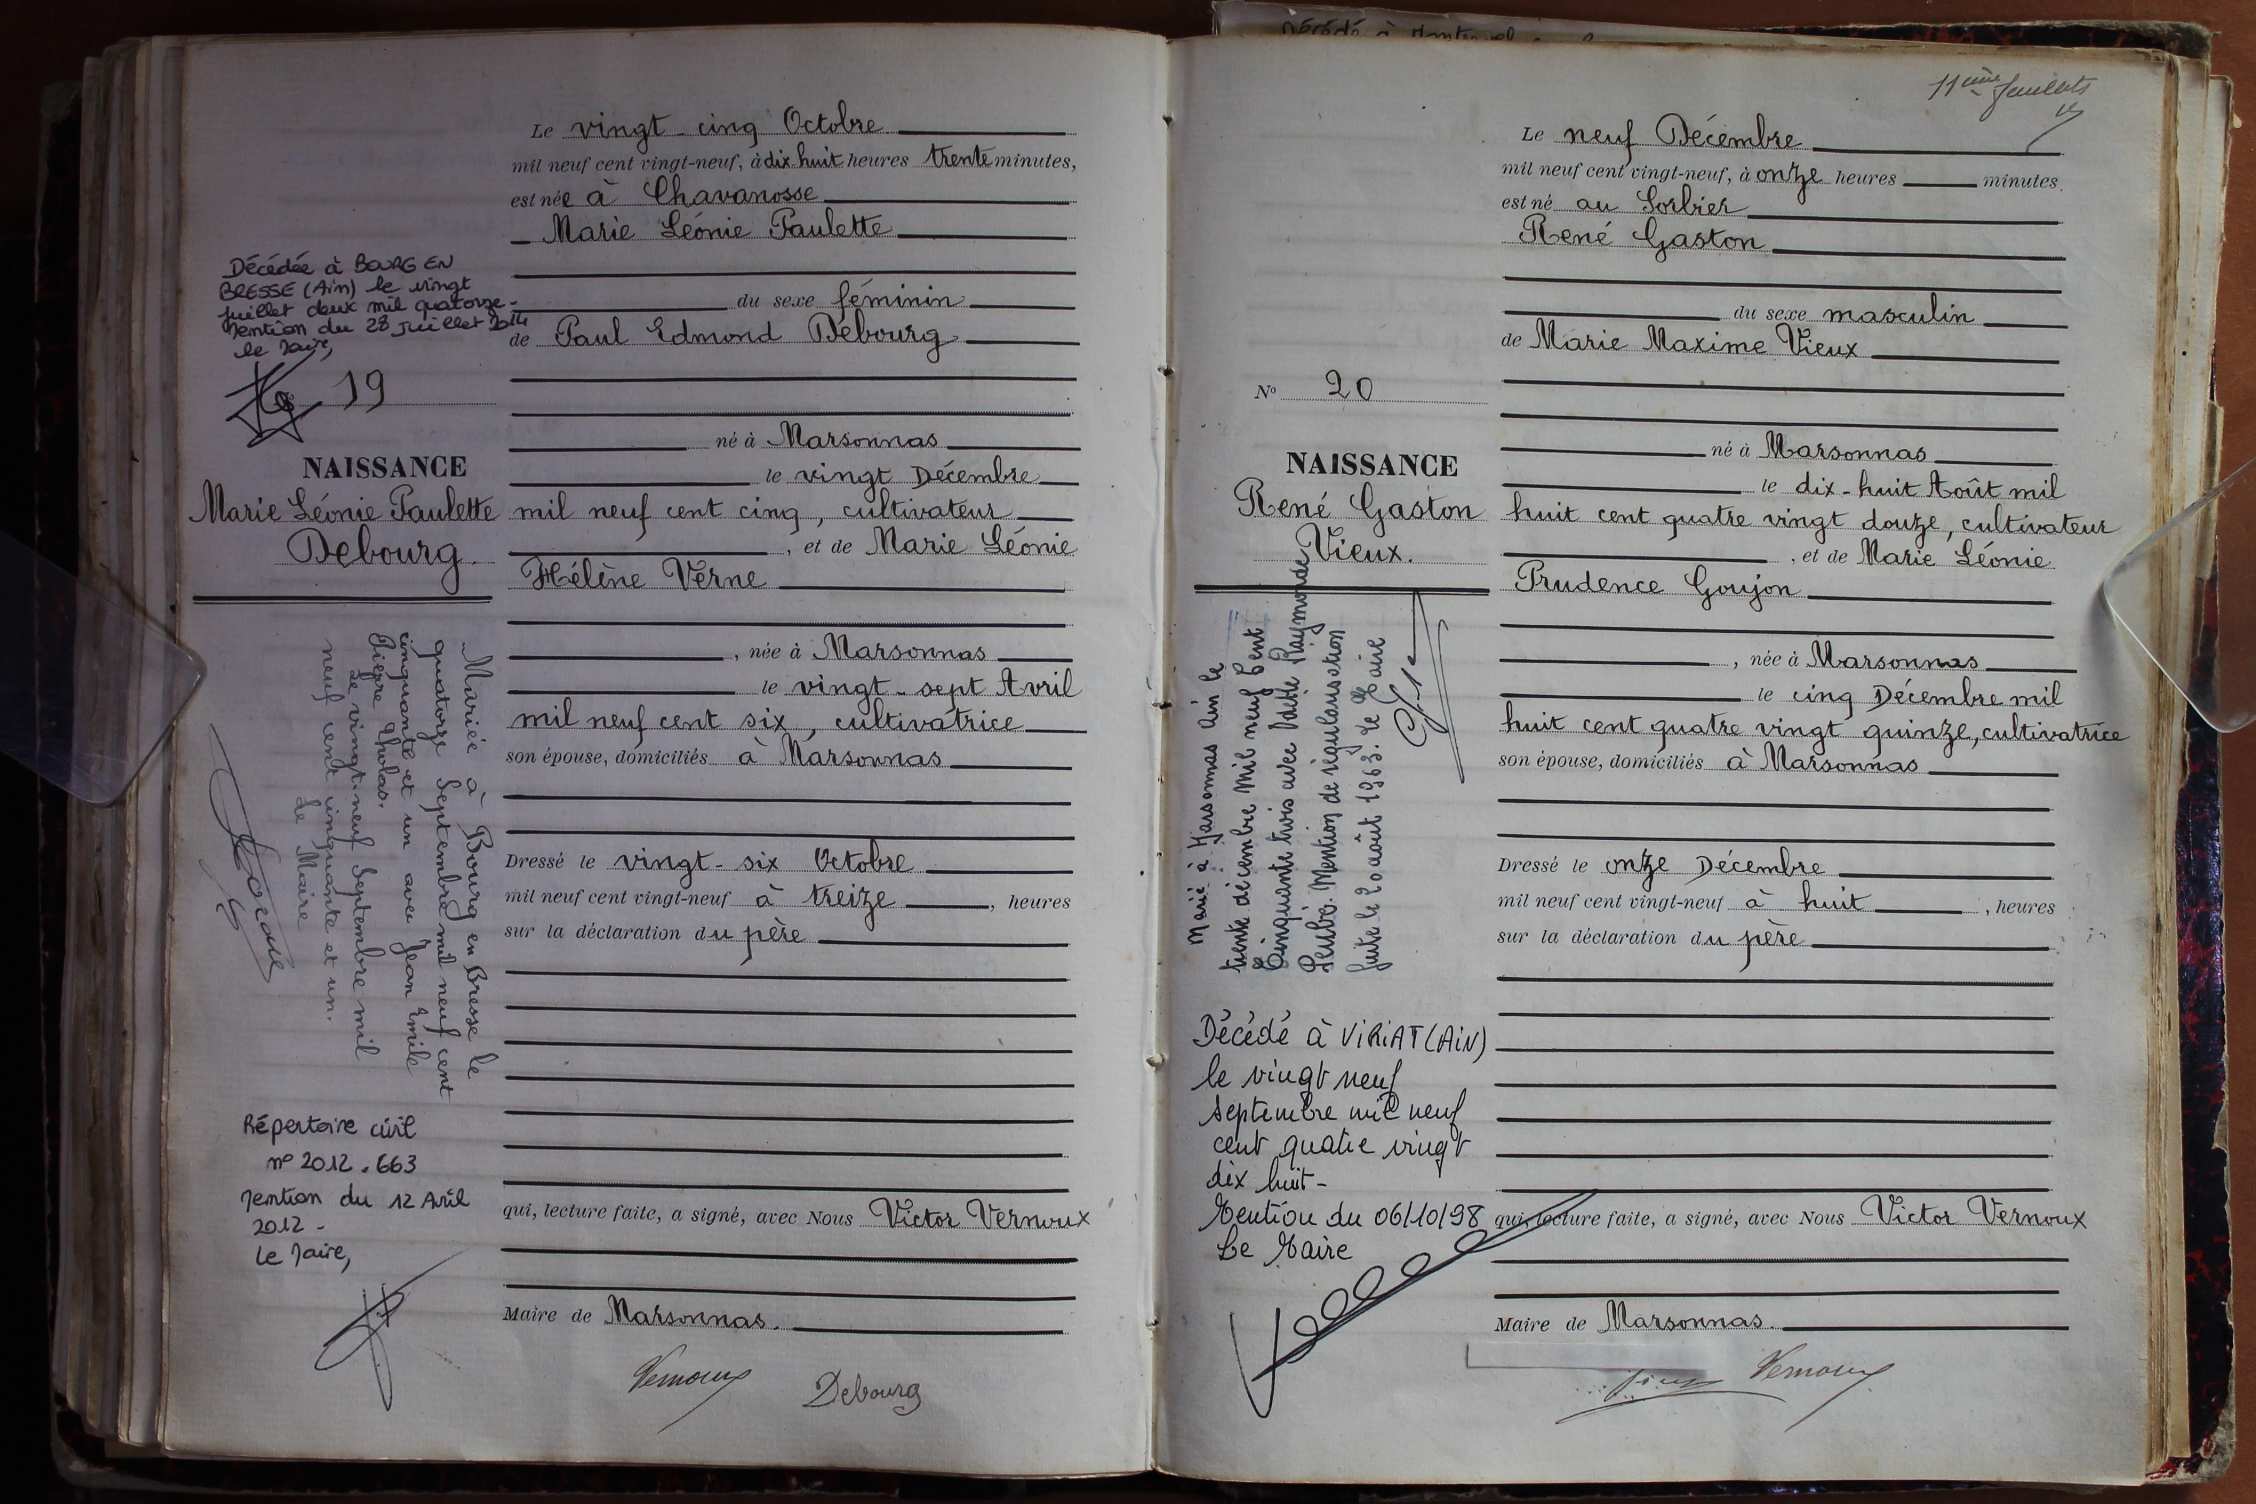 Le vingt-cinq Octobre
mil neuf cent vingt-neuf, à dix huit heures trente minutes,
est née à Chavanosse
Marie Léonie Paulette
du sexe féminin
de Paul Edmond Debourg
né à Marsonnas
le vingt Décembre
mil neuf cent cinq, cultivateur
, et de Marie Léonie
Hélène Verne
, née à Marsonnas
le vingt-sept Avril
mil neuf cent six, cultivatrice
son épouse, domiciliés à Marsonnas
Dressé le vingt-six Octobre
mil neuf cent vingt-neuf à treize , heures
sur la déclaration du père
qui, lecture faite, a signé, avec Nous Victor Vernoux
Maire de Marsonnas.
Vernoux
Debourg
Décédée à BOURG EN
BRESSE (Ain) le vingt
juillet deux mil quatorze -
Mention du 28 Juillet 2014
le Maire,
19
NAISSANCE
Marie Léonie Paulette
Debourg.
Mariée à Bourg en Bresse le
quatorze Septembre mil neuf cent
cinquante et un avec Jean Emile
Pierre
Le vingt-neuf Septembre mil
neuf cent cinquante et un.
Le Maire
Répertoire civil
n° 2012.663
Mention du 12 Avril
2012 -
Le Maire,
11ème feuillets
Le neuf Décembre
mil neuf cent vingt-neuf, à onze heures minutes.
est né au Sorbier
René Gaston
du sexe masculin
de Marie Maxime Vieux
né à Marsonnas
le dix-huit Août mil
huit cent quatre vingt douze, cultivateur
, et de Marie Léonie
Prudence Goujon
, née à Marsonnas
le cinq Décembre mil
huit cent quatre vingt quinze, cultivatrice
son épouse, domiciliés à Marsonnas
Dressé le onze Décembre
mil neuf cent vingt-neuf à huit , heures
sur la déclaration du père
qui, lecture faite, a signé, avec Nous Victor Vernoux
Maire de Marsonnas.
Vernoux
N° 20
NAISSANCE
René Gaston
Vieux.
Marié à Marsonnas Ain le
trente décembre mil neuf Cent
Cinquante trois avec Raymonde
Mention de régularisation
faite le 20 août 1963. Le Maire
Décédé à VIRIAT (AIN)
le vingt neuf
septembre mil neuf
cent quatre vingt
dix huit -
Mention du 06/10/98
Le Maire